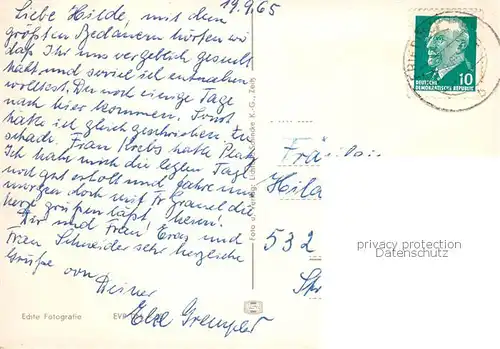 19.9.65
Liebe Hilde, mit dem
größten Bedauern hörten wir
daß Ihr uns vergeblich gesucht
habt und soviel ich entnehme
wolltest Du noch einige Tage
nach hier kommen. Sonst
hätte ich gleich geschrieben. Zu
schade. Frau Krebs hatte Platz
Ich habe mich die letzten Tage
und gut erholt und fahre nun
morgen doch mit Fr. die
herzl. grüßen läßt, heim!
Dir und Frau und
Frau Schneider sehr herzliche
Grüße von
Deiner
Else Grempler
Echte Fotografie
EVP
Foto u. Verlag K.-G., Zeitz
DEUTSCHE
DEMOKRATISCHE REPUBLIK
10
Fräulein
Hild
532
privacy protection
Datenschutz